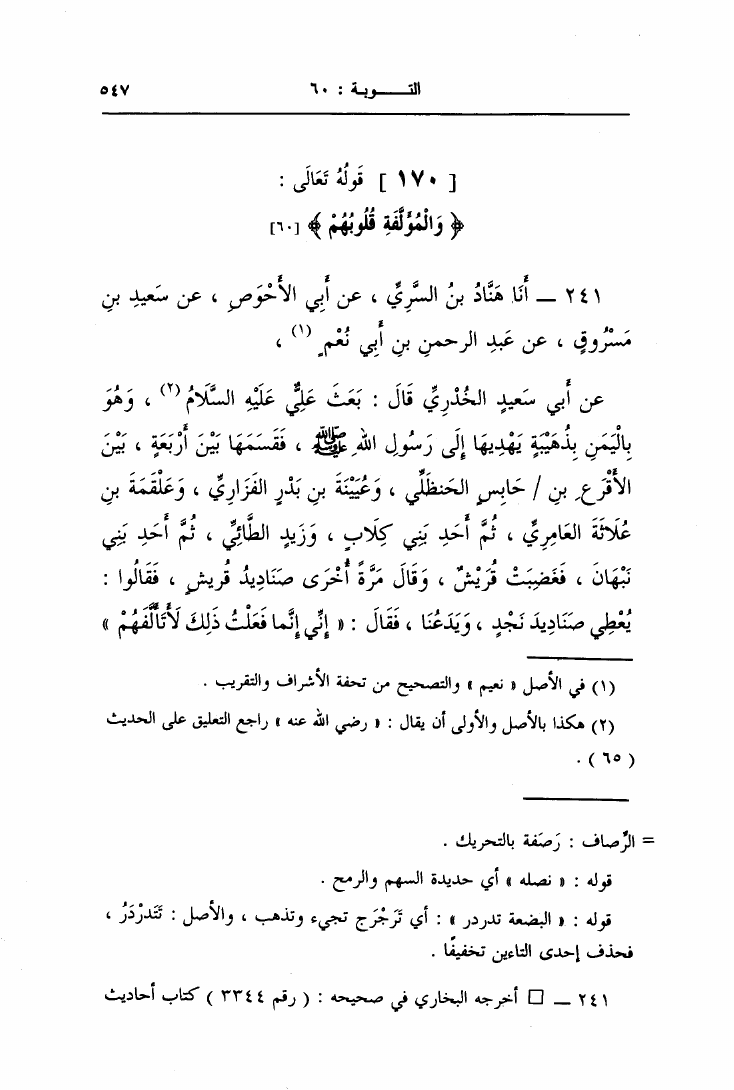 التـــوبـة : ٦٠ ٥٤٧
[ ١٧٠ ] قَولُهُ تَعَالَى :
﴿ وَالْمُؤَلَّفَةِ قُلُوبُهُمْ ﴾ [٦٠]
٢٤١ ــ أَنَا هَنَّادُ بنُ السَّرِيِّ ، عن أَبِي الأَحْوَصِ ، عن سَعيدِ بنِ
مَسْرُوقٍ ، عن عَبدِ الرحمنِ بنِ أَبِي نُعْمٍ (١) ،
عن أَبي سَعيدٍ الخُدْرِيِّ قَالَ : بَعَثَ عَلِيٌّ عَلَيْهِ السَّلَامُ (٢) ، وَهُوَ
بِالْيَمَنِ بِذُهَيْبَةٍ يَهْدِيهَا إِلَى رَسُولِ اللهِ ﷺ ، فَقَسَمَهَا بَيْنَ أَرْبَعَةٍ ، بَيْنَ
الأَقْرَعِ بنِ / حَابِسٍ الحَنظَلِّي ، وَعُيَيْنَةَ بنِ بَدْرٍ الفَزَارِيِّ ، وَعَلْقَمَةَ بنِ
عُلَاثَةَ العَامِرِيِّ ، ثُمَّ أَحَدِ بَنِي كِلَابٍ ، وَزَيدٍ الطَّائِيِّ ، ثُمَّ أَحَدِ بَنِي
نَبْهَانَ ، فَغَضِبَتْ قُرَيْشٌ ، وَقَالَ مَرَّةً أُخْرَى صَنَادِيدُ قُريشٍ ، فَقَالُوا :
يُعْطِي صَنَادِيدَ نَجْدٍ ، وَيَدَعُنَا ، فَقَالَ : « إِنِّي إِنَّما فَعَلْتُ ذَلِكَ لَأَتَأَلَّفَهُمْ »
(١) في الأصل « نعيم » والتصحيح من تحفة الأشراف والتقريب .
(٢) هكذا بالأصل والأولى أن يقال : « رضي الله عنه » راجع التعليق على الحديث
( ٦٥ ) .
= الرِّصاف : رَصَفة بالتحريك .
قوله : « نصله » أي حديدة السهم والرمح .
قوله : « البضعة تدردر » : أي تَرَجْرَج تجيء وتذهب ، والأصل : تَتَدرْدَرُ ،
فحذف إحدى التاءين تخفيفًا .
٢٤١ ــ □ أخرجه البخاري في صحيحه : ( رقم ٣٣٤٤ ) كتاب أحاديث